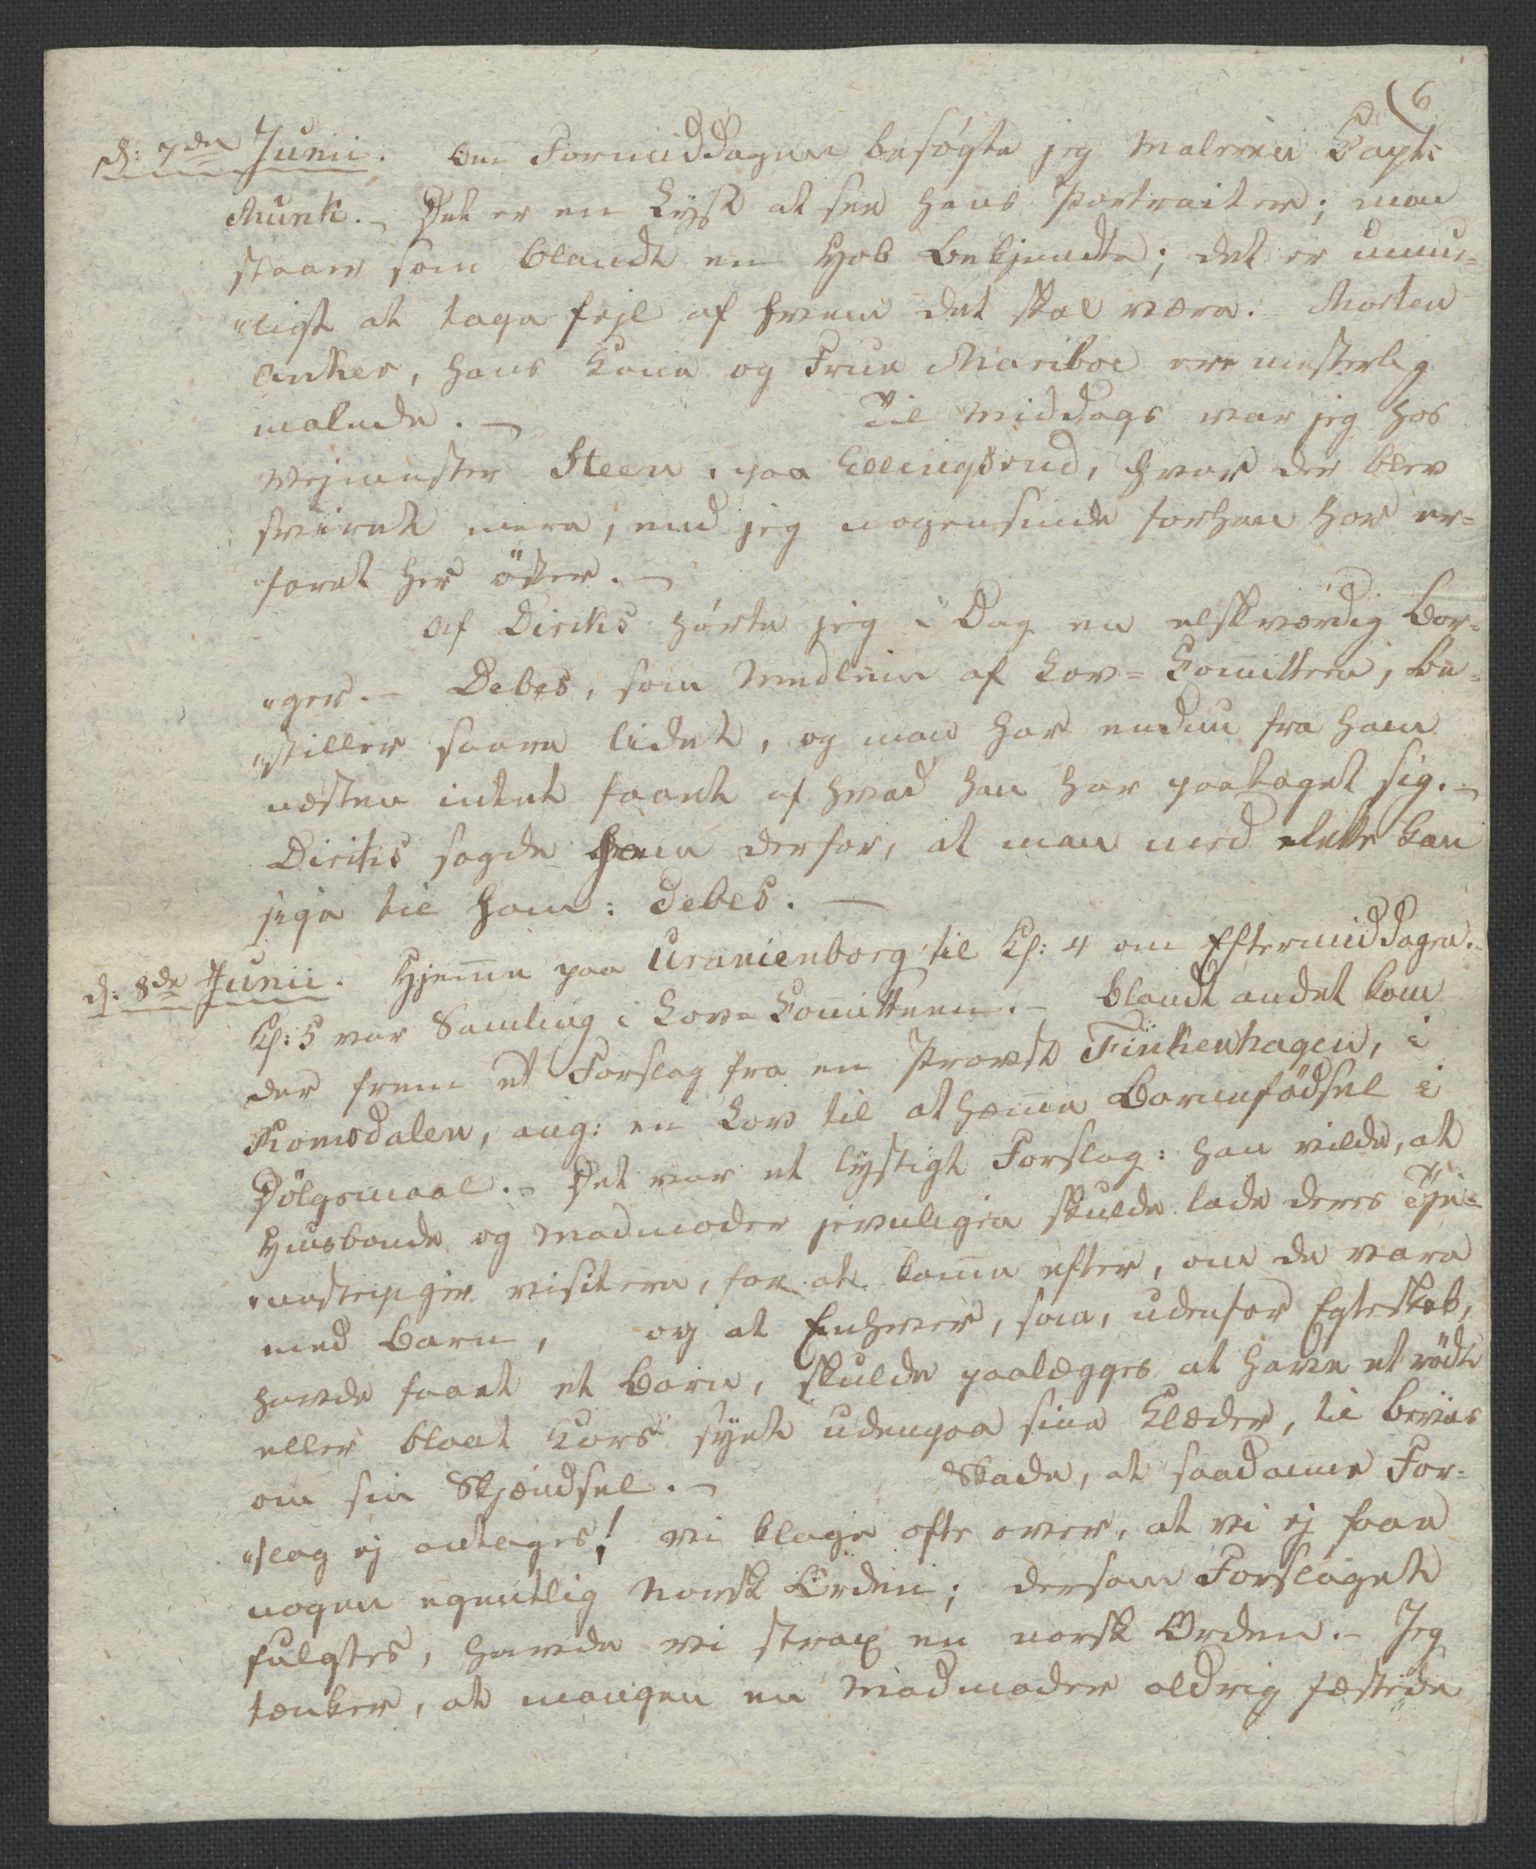 (6
d: 7de Junii. Om Formiddagen besøgte jeg Maleren Capt:
Munk. – Det er en Lyst at see hans Portraiter; man
staaer som blandt en Hob Bekjendte; det er umue-
"ligt at tage fejl af hvem det skal være. Morten
Anker, hans Kone og Frue Mariboe ere mesterlig
malede. – Til Middags var jeg hos
Vejmester Steen, paa Ellingsrud, hvor der blev
sviret mere, end jeg nogensinde forhen har er-
faret her öster. –
Af Diriks hörte jeg i Dag en elskværdig Bor-
"ger. – Debes, som Medlem af Lov-Com̅itteen, be-
"stiller saare lidet, og man har endnu fra ham
næsten intet faaet af hvad han har paataget sig. –
Diriks sagde ham derfor, at man med Rette kan
sige til ham: Debes. –
d: 8de Junii. Hjem̅e paa Uranienborg til Kl: 4 om Eftermiddagen. –
Kl: 5 var Samling i Lov-Com̅itteen. – Blandt andet kom
der frem et Forslag fra en Provst Finkenhagen, i
Romsdalen, ang: en Lov til at hæm̅e Barnefödsel i
Dölgsmaal. – Det var et lystigt Forslag: han vilde, at
Huusbonde og Madmoder jevnligen skulde lade deres Tje-
"nestepiger visitere, for at kom̅e efter, om de vare
med Barn, og at Enhver, som, udenfor Egteskab,
havde faaet et Barn, skulde paalægges at have et rödt
eller blaat Kors syet udenpaa sine Klæder, til Beviis
om sin Skjændsel. – Skade, at saadanne For-
"slag ej antages! Vi klage ofte over, at vi ej faae
nogen egentlig Norsk Orden; dersom Forslaget
fulgtes, havde vi strax en norsk Orden. – Jeg
tænker, at mangen en Madmoder aldrig fæstede